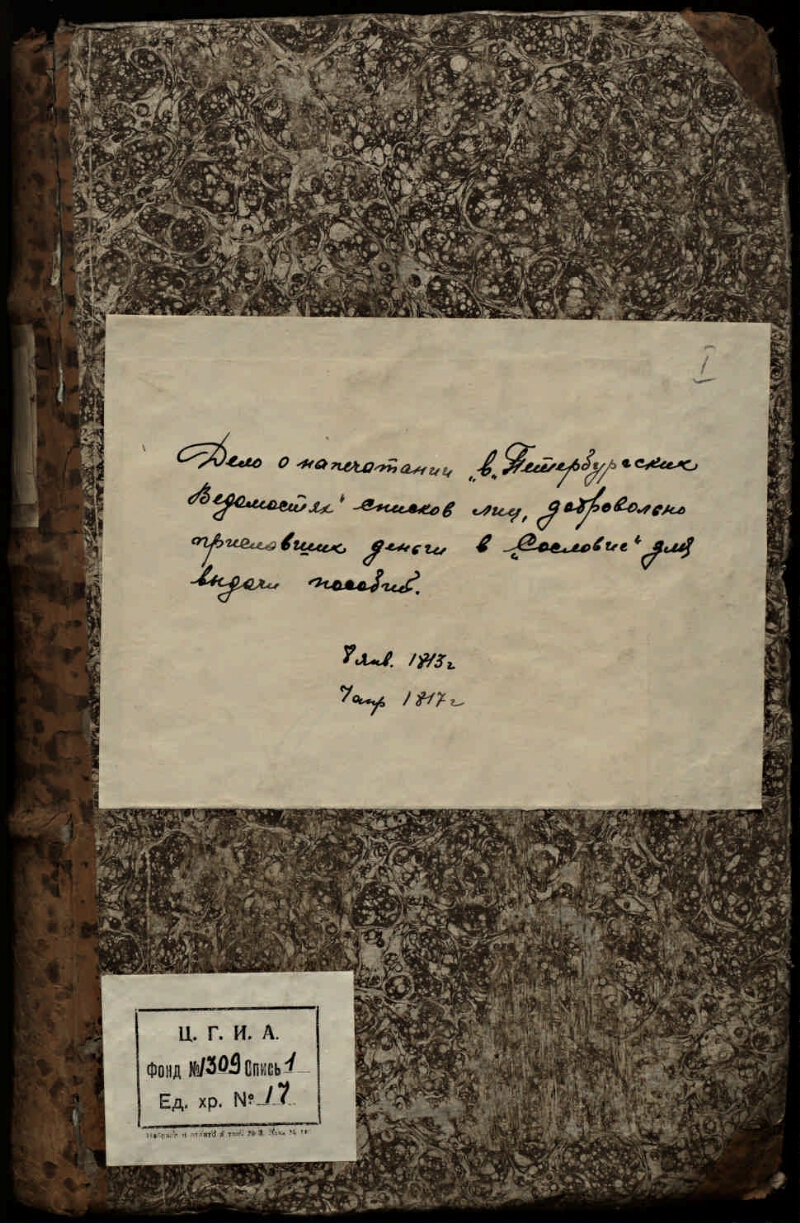 I
Дело о напечатании в „Петербургских
Ведомостях“ списков лиц, добровольно
присылавших деньги в „Сословие“ для
выдачи пособий.
7 янв. 1813 г.
7 апр 1817 г.
Ц. Г. И. А.
Фонд №1309 Опись 1
Ед. хр. № 17